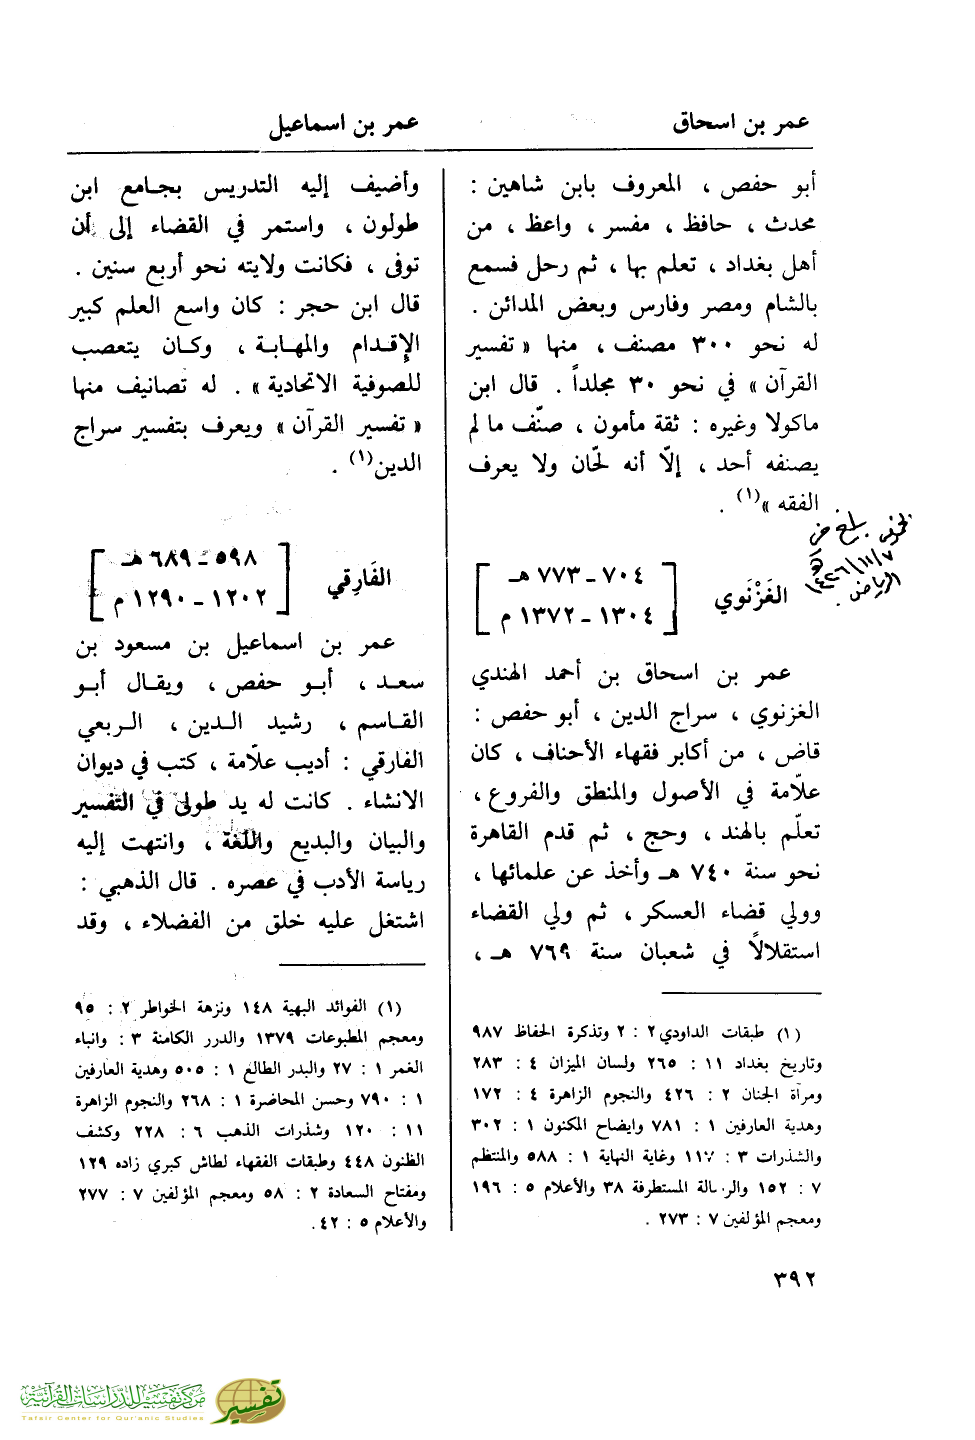 عمر بن اسحاق
عمر بن اسماعيل
أبو حفص ، المعروف بابن شاهين :
محدث ، حافظ ، مفسر ، واعظ ، من
أهل بغداد ، تعلم بها ، ثم رحل فسمع
بالشام ومصر وفارس وبعض المدائن .
له نحو ٣٠٠ مصنف ، منها « تفسير
القرآن » في نحو ٣٠ مجلداً . قال ابن
ماكولا وغيره : ثقة مأمون ، صنّف ما لم
يصنفه أحد ، إلّا أنه لحّان ولا يعرف
الفقه »(١) .
الغَزْنَوي
٧٠٤ - ٧٧٣ هـ
١٣٠٤ - ١٣٧٢ م
عمر بن اسحاق بن أحمد الهندي
الغزنوي ، سراج الدين ، أبو حفص :
قاض ، من أكابر فقهاء الأحناف ، كان
علّامة في الأصول والمنطق والفروع ،
تعلّم بالهند ، وحج ، ثم قدم القاهرة
نحو سنة ٧٤٠ هـ وأخذ عن علمائها ،
وولي قضاء العسكر ، ثم ولي القضاء
استقلالاً في شعبان سنة ٧٦٩ هـ ،
(١) طبقات الداودي ٢ : ٢ وتذكرة الحفاظ ٩٨٧
وتاريخ بغداد ١١ : ٢٦٥ ولسان الميزان ٤ : ٢٨٣
ومرآة الجنان ٢ : ٤٢٦ والنجوم الزاهرة ٤ : ١٧٢
وهدية العارفين ١ : ٧٨١ وايضاح المكنون ١ : ٣٠٢
والشذرات ٣ : ١١٧ وغاية النهاية ١ : ٥٨٨ والمنتظم
٧ : ١٥٢ والرسالة المستطرفة ٣٨ والأعلام ٥ : ١٩٦
ومعجم المؤلفين ٧ : ٢٧٣ .
الحمد لله بلغ
١٤٢٦/١١/٧ هـ
الرياض .
وأضيف إليه التدريس بجامع ابن
طولون ، واستمر في القضاء إلى أن
توفى ، فكانت ولايته نحو أربع سنين .
قال ابن حجر : كان واسع العلم كبير
الإقدام والمهابة ، وكان يتعصب
للصوفية الاتحادية » . له تصانيف منها
« تفسير القرآن » ويعرف بتفسير سراج
الدين(١) .
الفَارِقي
٥٩٨ - ٦٨٩ هـ
١٢٠٢ - ١٢٩٠ م
عمر بن اسماعيل بن مسعود بن
سعد ، أبو حفص ، ويقال أبو
القاسم ، رشيد الدين ، الربعي
الفارقي : أديب علّامة ، كتب في ديوان
الانشاء . كانت له يد طولى في التفسير
والبيان والبديع واللغة ، وانتهت إليه
رياسة الأدب في عصره . قال الذهبي :
اشتغل عليه خلق من الفضلاء ، وقد
(١) الفوائد البهية ١٤٨ ونزهة الخواطر ٢ : ٩٥
ومعجم المطبوعات ١٣٧٩ والدرر الكامنة ٣ : وانباء
الغمر ١ : ٢٧ والبدر الطالع ١ : ٥٠٥ وهدية العارفين
١ : ٧٩٠ وحسن المحاضرة ١ : ٢٦٨ والنجوم الزاهرة
١١ : ١٢٠ وشذرات الذهب ٦ : ٢٢٨ وكشف
الظنون ٤٤٨ وطبقات الفقهاء لطاش كبري زاده ١٢٩
ومفتاح السعادة ٢ : ٥٨ ومعجم المؤلفين ٧ : ٢٧٧
والأعلام ٥ : ٤٢.
٣٩٢
مركز تفسير للدراسات القرآنية
Tafsir Center for Qur'anic Studies
تفسير